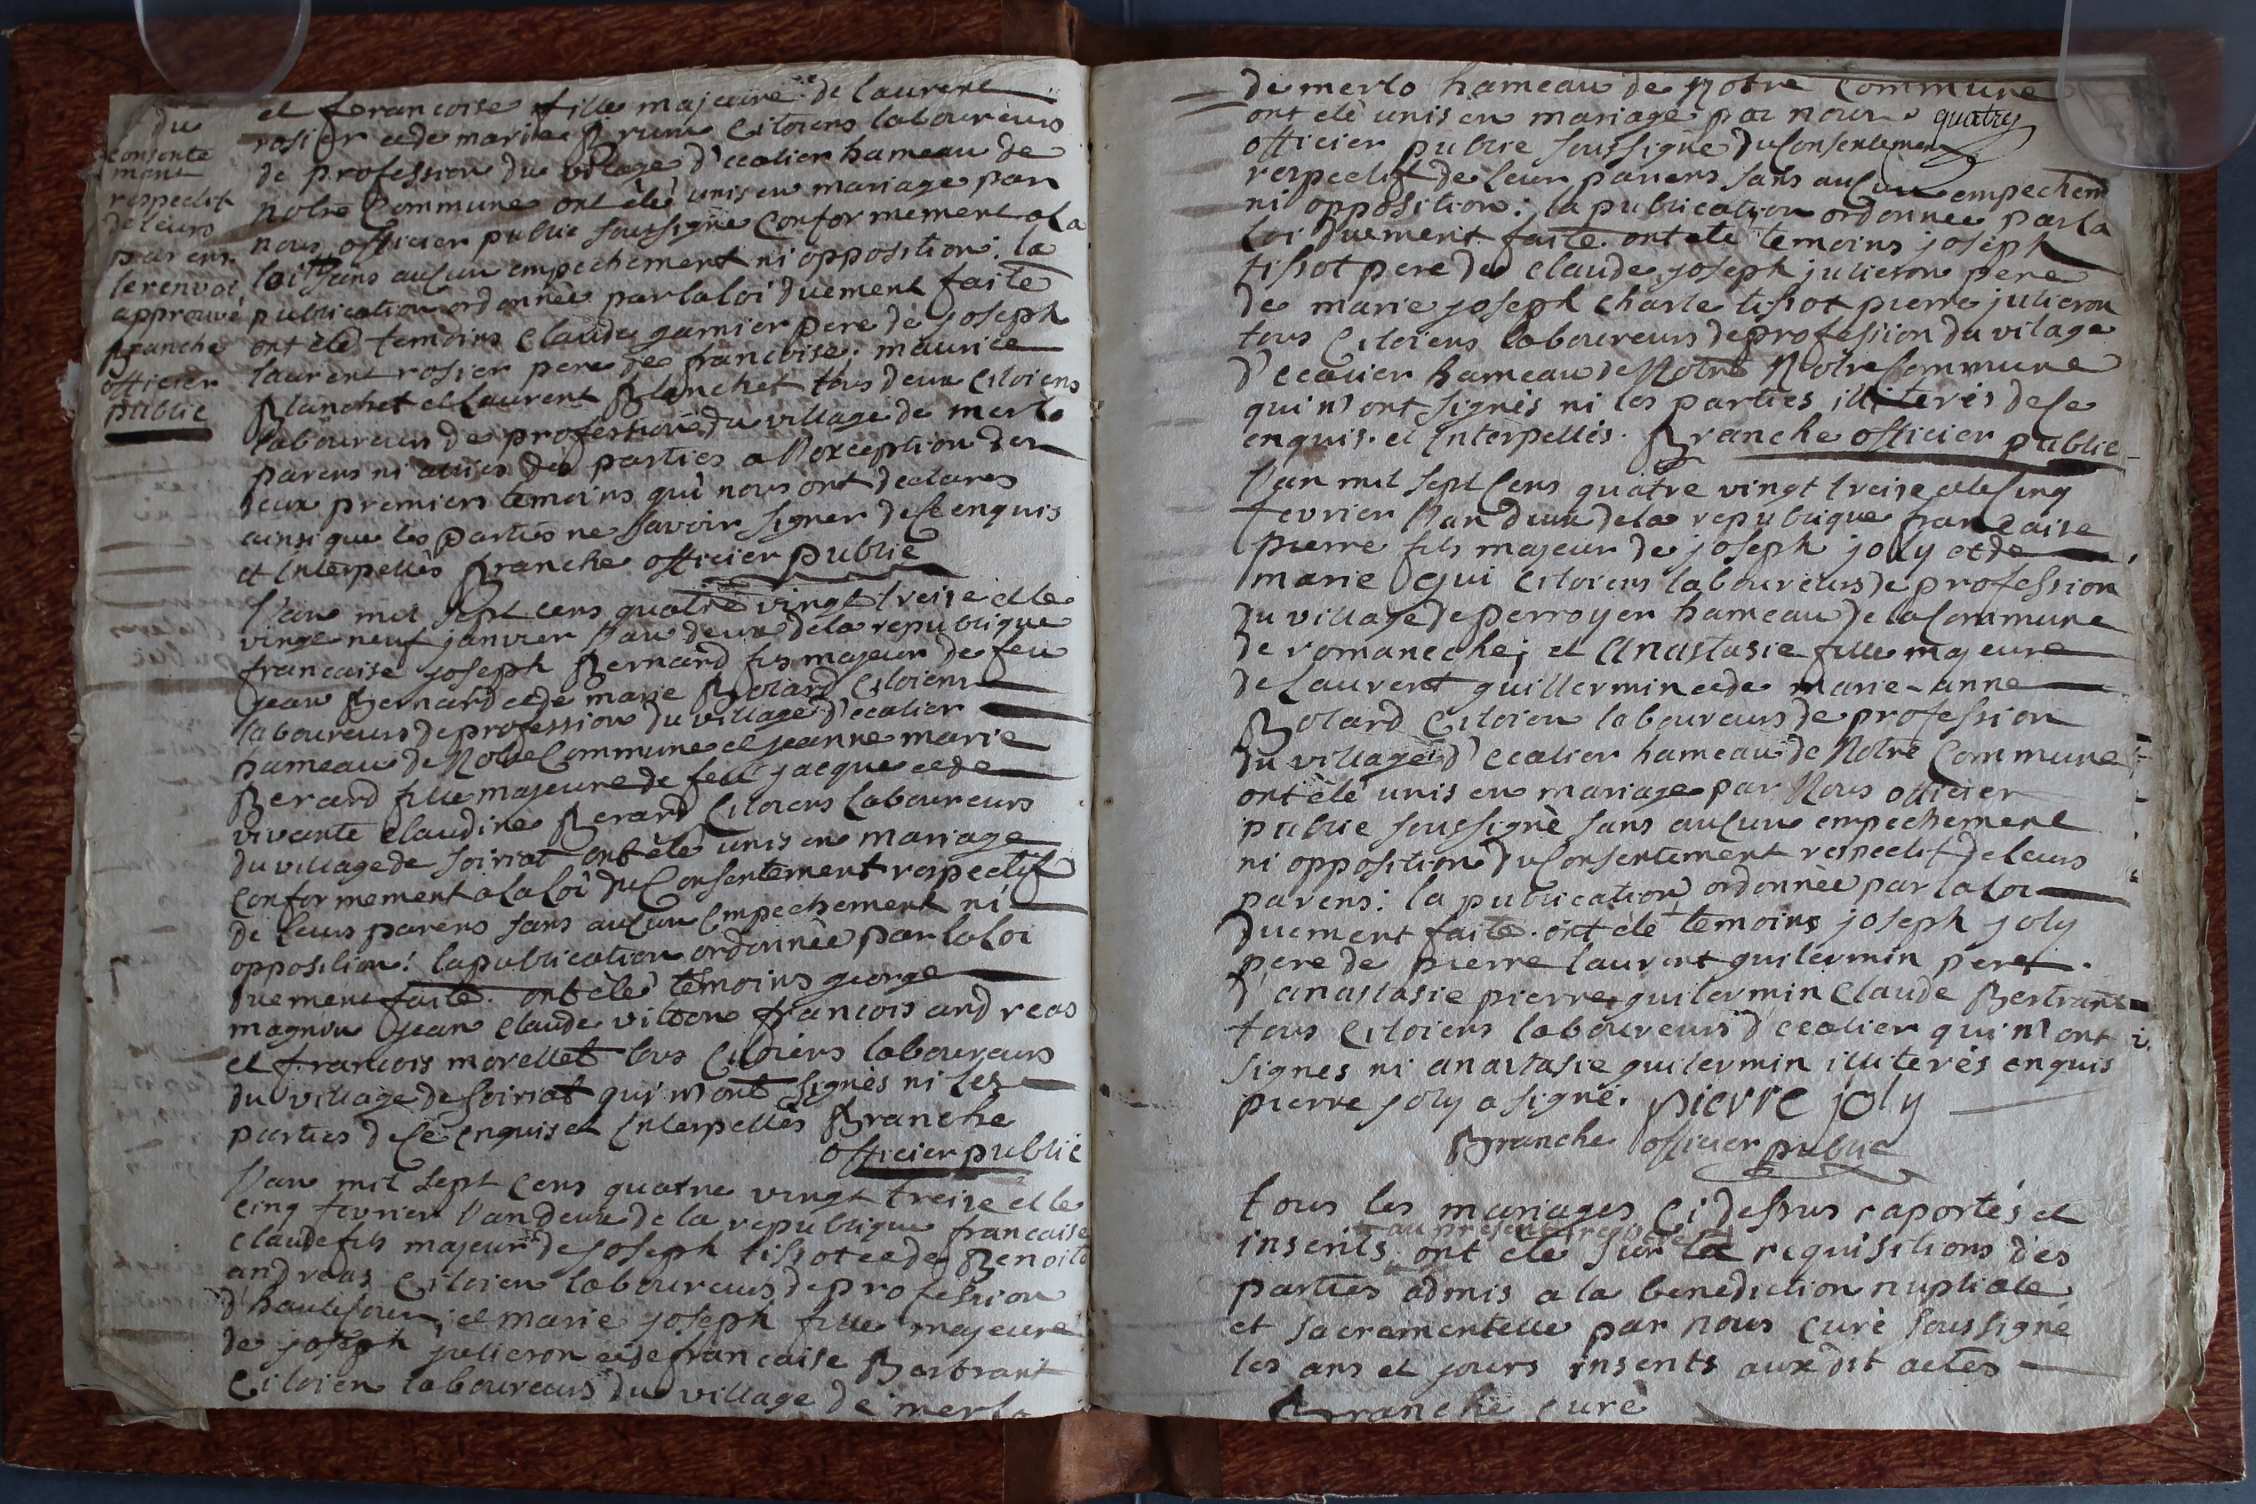 du
consente
ment
respectif
de leurs
parens.
le renvoi
approuvé
Branche
officier
public
et francoise fille majeure de laurent
rosier et de marie Brun Citoiens laboureurs
de profession du vilage d'ecalier hameau de
notre Commune ont étè unis en mariage par
nous officier public soussignè Conformement a la
loi sans auCun empechement ni opposition: la
publication ordonnèe par la loi duement faite
ont étè temoins Claude garnier pere de joseph
laurent rosier pere de francoise. maurice
Blanchet et Laurent Blanchet tous deux Citoiens
laboureurs de profession du village de merlo
parens ni alliès des parties a l'exception des
deux premiers temoins qui nous ont declarès
ainsi que les parties ne savoir signer de Ce enquis
et Interpellès Branche officier public
l'an mil sept cens quatre vingt treise et le
vingt neuf janvier l'an deux de la republique
francaise joseph Bernard fils majeur de feu
jean Bernard et de marie Bolard Citoiens
laboureurs de profession du village d'ecalier
hameau de Notre Commune et jeanne marie
Berard fille majeure de feu jacque et de
vivante claudine Berard Citoiens laboureurs
du village de soiriat ont étè unis en mariage
Conformement a la loi du Consentement respectif
de leurs parens sans auCun empechement ni
opposition: la publication ordonnèe par la loi
duement faite. ont étè temoins george
magnin jean claude villon francois andreas
et francois morellet tous Citoiens laboureurs
du village de soiriat qui n'ont signès ni les
parties de Ce enquis et Interpellès Branche
officier public
l'an mil sept Cens quatre vingt treise et le
cinq fevrier l'an deux de la republique francaise
claude fils majeur de joseph tissot et de Benoite
andreas Citoien laboureurs de profession
d'hautefour; et marie joseph fille majeure
de joseph julieron et de francaise Bertrant
Citoien laboureurs du village de merlo
de merlo hameau de Notre Commune
ont étè unis en mariage par nous
quatre
officier public soussignè du Consentement
respectif de leur parens sans auCun empechem
ni opposition: la publication ordonnèe par la
loi duement faite. ont ete temoins joseph
tissot pere de claude, joseph julieron pere
de marie joseph charle tissot pierre julieron
tous Citoiens laboureurs de profession du vilage
d'ecalier hameau de Notre Notre Commune
qui n'ont signès ni les parties illiterès de Ce
enquis. et Interpellès. Branche officier public
l'an mil sept Cens quatre vingt treise et le Cinq
fevrier l'an deux de la republique francaise
pierre fils majeur de joseph joly et de
marie gui Citoiens laboureurs de profession
du village de perroyer hameau de la Commune
de romaneche; et Anastasie fille majeure
de Laurent guillermin et de marie-anne
Bolard Citoien laboureurs de profession
du village d'ecalier hameau de Notre Commune
ont étè unis en mariage par Nous officier
public soussignè sans auCun empechement
ni opposition du Consentement respectif de leurs
parens: la publication ordonnèe par la loi
duement faite. ont étè temoins joseph joly
pere de pierre laurent guilermin pere
d'anastasie pierre guilermin Claude Bertrant
tous Citoiens laboureurs d'ecalier qui n'ont
signes ni anastasie guilermin illiterès enquis
pierre joly a signè. pierre joly
Branche officier public
tous les mariages Ci dessus raportès et
au present registre
inserits ont etè sur la requisitions des
parties admis a la benediction nuptiale
et sacramentelle par nous Curè soussignè
les ans et jours inserits aux dit actes
Branche curè